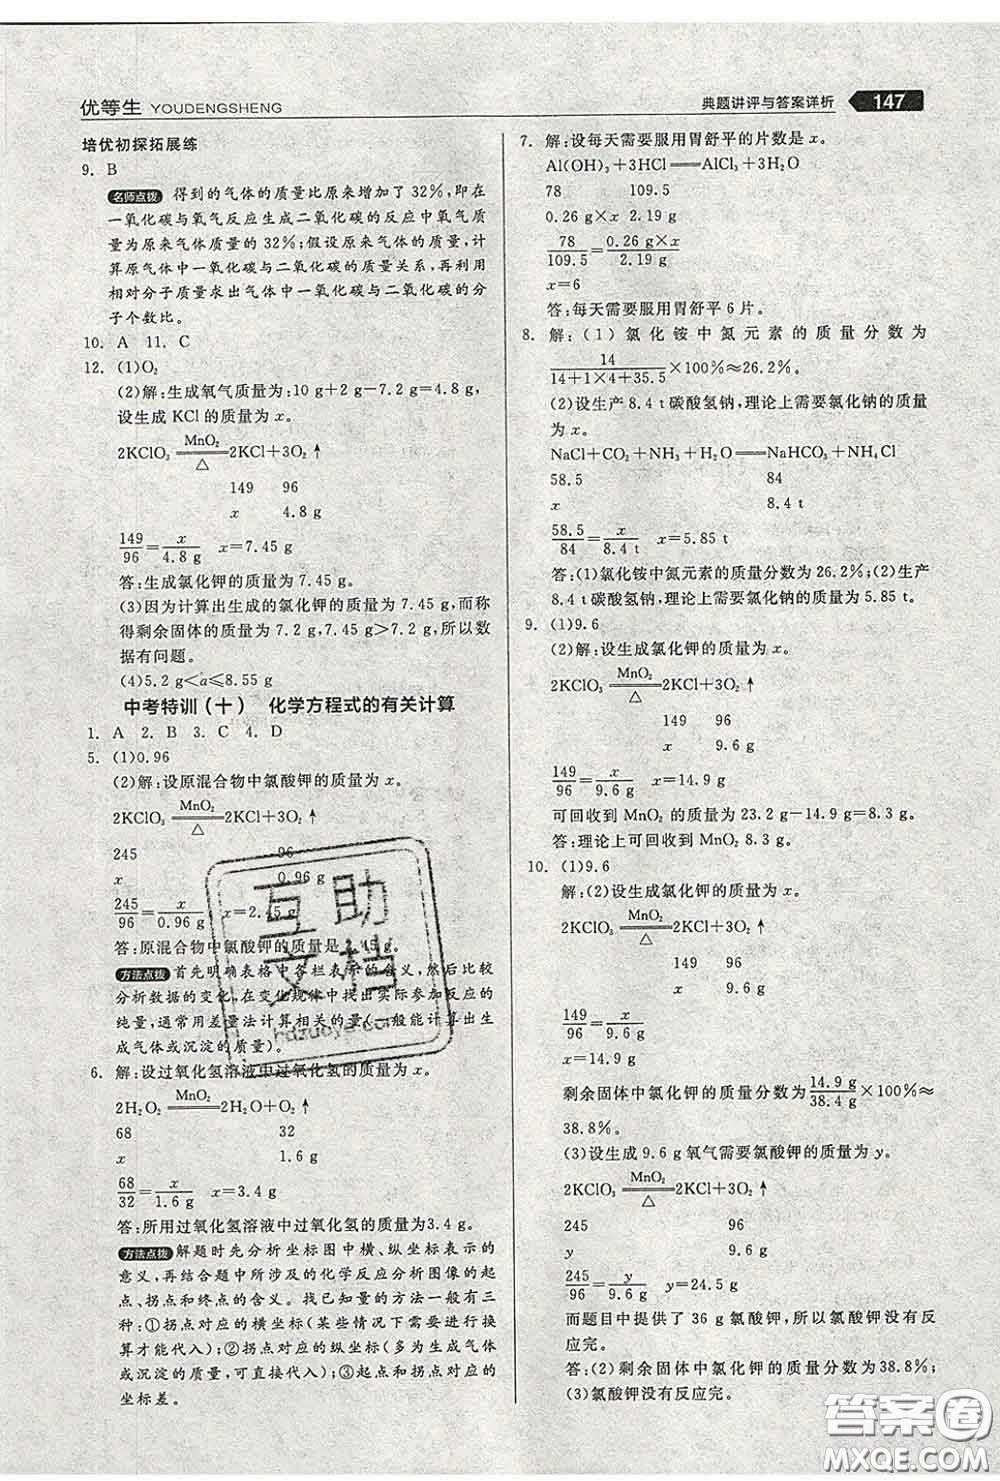 优等生 YOUDENGSHENG
典题讲评与答案详析 147
培优初探拓展练
9. B
名师点拨 得到的气体的质量比原来增加了 32%,即在
一氧化碳与氧气反应生成二氧化碳的反应中氧气质
量为原来气体质量的 32%;假设原来气体的质量,计
算原气体中一氧化碳与二氧化碳的质量关系,再利用
相对分子质量求出气体中一氧化碳与二氧化碳的分
子个数比。
10. A 11. C
12. (1)O₂
(2)解:生成氧气质量为:10 g+2 g−7.2 g=4.8 g,
设生成 KCl 的质量为 x。
2KClO₃ =MnO₂/△= 2KCl+3O₂↑
149 96
x 4.8 g
149/96=x/4.8 g x=7.45 g
答:生成氯化钾的质量为 7.45 g。
(3)因为计算出生成的氯化钾的质量为 7.45 g,而称
得剩余固体的质量为 7.2 g,7.45 g>7.2 g,所以数
据有问题。
(4)5.2 g<a≤8.55 g
中考特训(十) 化学方程式的有关计算
1. A 2. B 3. C 4. D
5. (1)0.96
(2)解:设原混合物中氯酸钾的质量为 x。
2KClO₃ =MnO₂/△= 2KCl+3O₂↑
245 96
x 0.96 g
245/96=x/0.96 g x=2.45 g
答:原混合物中氯酸钾的质量是 2.45 g。
方法点拨 首先明确表格中各栏表示的含义,然后比较
分析数据的变化,在变化规律中找出实际参加反应的
纯量,通常用差量法计算相关的量(一般能计算出生
成气体或沉淀的质量)。
6. 解:设过氧化氢溶液中过氧化氢的质量为 x。
2H₂O₂ =MnO₂= 2H₂O+O₂↑
68 32
x 1.6 g
68/32=x/1.6 g x=3.4 g
答:所用过氧化氢溶液中过氧化氢的质量为3.4 g。
方法点拨 解题时先分析坐标图中横、纵坐标表示的
意义,再结合题中所涉及的化学反应分析图像的起
点、拐点和终点的含义。找已知量的方法一般有三
种:①拐点对应的横坐标(某些情况下需要进行换
算才能代入);②拐点对应的纵坐标(多为生成气体
或沉淀的质量,可直接代入);③起点与拐点对应的
坐标差。
7. 解:设每天需要服用胃舒平的片数是 x。
Al(OH)₃+3HCl══AlCl₃+3H₂O
78 109.5
0.26 g×x 2.19 g
78/109.5=0.26 g×x/2.19 g
x=6
答:每天需要服用胃舒平 6 片。
8. 解:(1)氯化铵中氮元素的质量分数为
14/14+1×4+35.5×100%≈26.2%
(2)设生产 8.4 t碳酸氢钠,理论上需要氯化钠的质量
为 x。
NaCl+CO₂+NH₃+H₂O══NaHCO₃+NH₄Cl
58.5 84
x 8.4 t
58.5/84=x/8.4 t x=5.85 t
答:(1)氯化铵中氮元素的质量分数为 26.2%;(2)生产
8.4 t碳酸氢钠,理论上需要氯化钠的质量为 5.85 t。
9. (1)9.6
(2)解:设生成氯化钾的质量为 x。
2KClO₃ =MnO₂/△= 2KCl+3O₂↑
149 96
x 9.6 g
149/96=x/9.6 g x=14.9 g
可回收到 MnO₂ 的质量为 23.2 g−14.9 g=8.3 g
答:理论上可回收到 MnO₂ 8.3 g。
10. (1)9.6
解:(2)设生成氯化钾的质量为 x。
2KClO₃ =MnO₂/△= 2KCl+3O₂↑
149 96
x 9.6 g
149/96=x/9.6 g
x=14.9 g
剩余固体中氯化钾的质量分数为14.9 g/38.4 g×100%≈
38.8%。
(3)设生成 9.6 g 氧气需要氯酸钾的质量为 y。
2KClO₃ =MnO₂/△= 2KCl+3O₂↑
245 96
y 9.6 g
245/96=y/9.6 g y=24.5 g
而题目中提供了 36 g 氯酸钾,所以氯酸钾没有反
应完。
答:(2)剩余固体中氯化钾的质量分数为 38.8%;
(3)氯酸钾没有反应完。
互助
文档
hdzuoye.com
答案圈
MXQE.COM